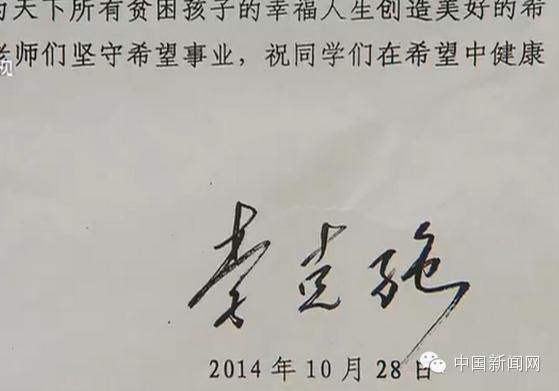 为天下所有贫困孩子的幸福人生创造美好的希
老师们坚守希望事业，祝同学们在希望中健康
视
李克强
2014 年 10 月 28 日
中国新闻网